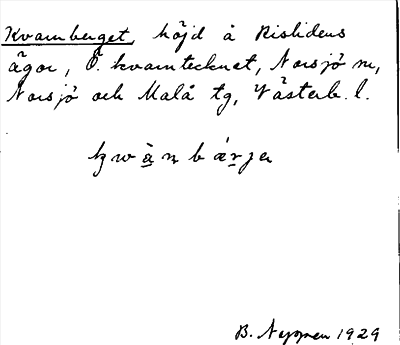 Kvarnberget, höjd å Rislidens
ägor, Ö. kvarntecknet, Norsjö sn,
Norsjö och Malå tg, Västerb. l.
kwa̲nbæ̲rjer
B. Nyman 1929